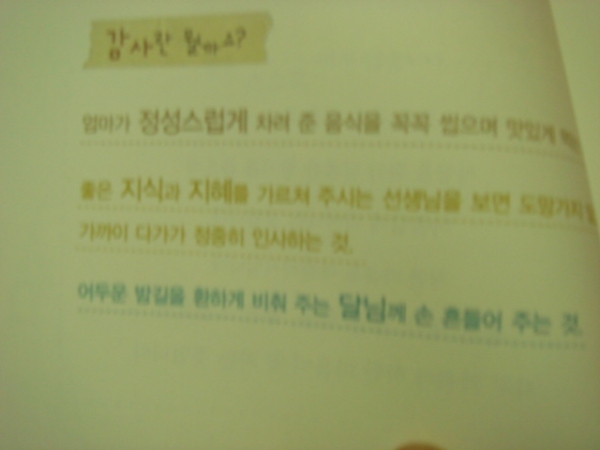 감사란 뭘까요?
엄마가 정성스럽게 차려 준 음식을 꼭꼭 씹으며 맛있게
좋은 지식과 지혜를 가르쳐 주시는 선생님을 보면 도망가지
가까이 다가가 정중히 인사하는 것.
어두운 밤길을 환하게 비춰 주는 달님께 손 흔들어 주는 것.